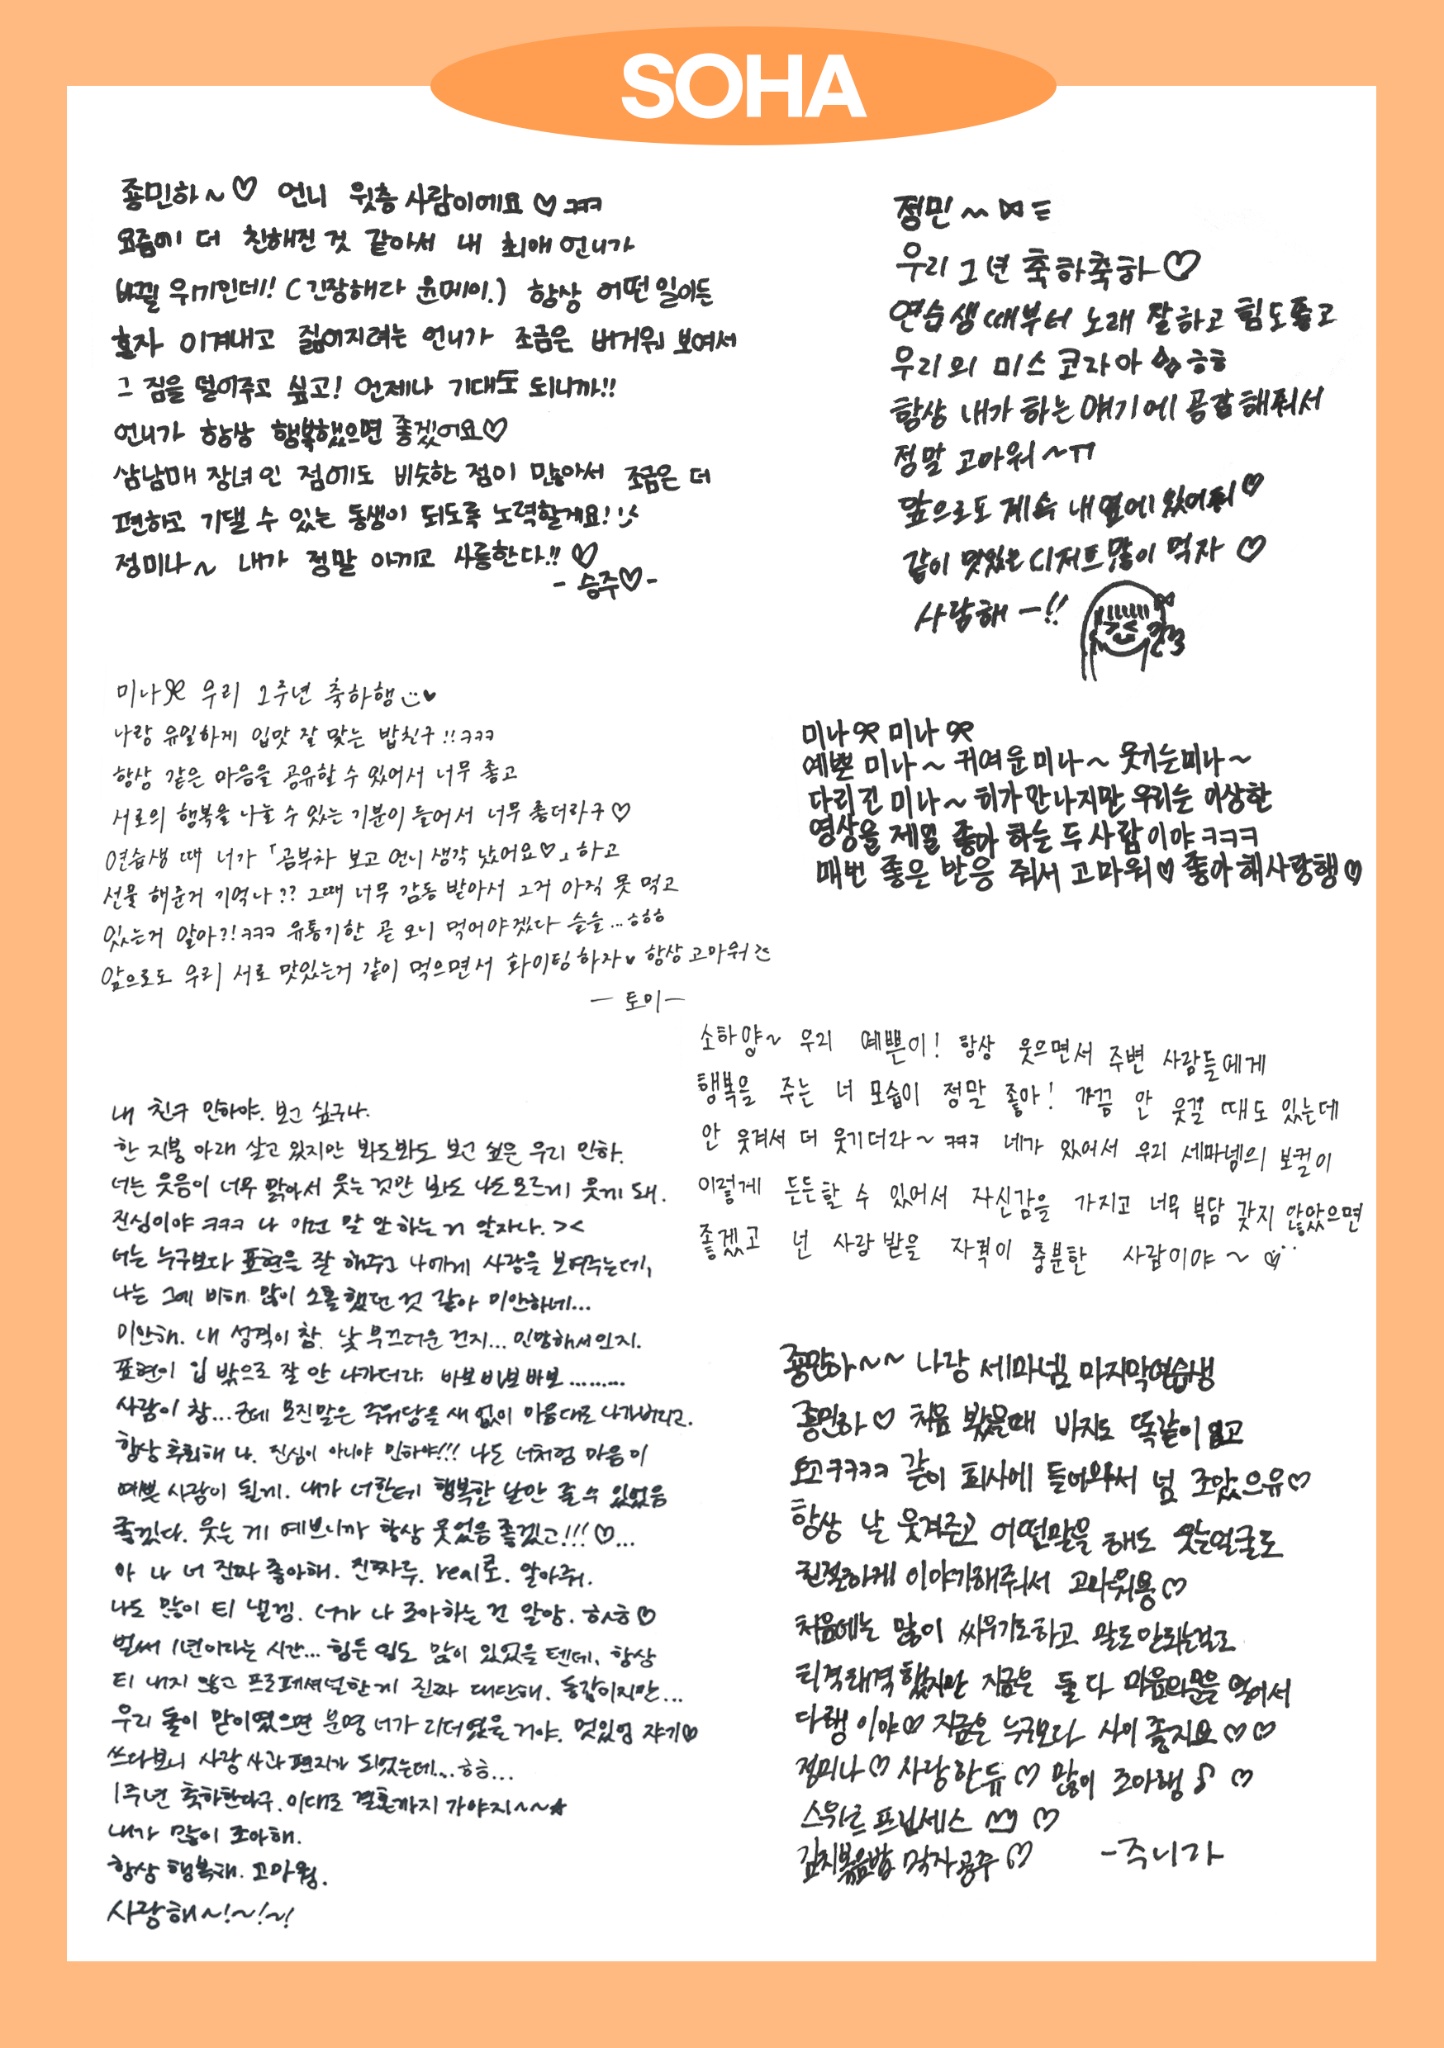 SOHA
종민하~♡ 언니 윗층 사람이에요♡ㅋㅋ
요즘에 더 친해진 것 같아서 내 최애 언니가
바뀔 위기인데!! (긴장해라 윤메이.) 항상 어떤 일이든
혼자 이겨내고 짊어지려는 언니가 조금은 버거워 보여서
그 짐을 덜어주고 싶고! 언제나 기대도 되니까!!
언니가 항상 행복했으면 좋겠어요♡
삼남매 장녀인 점에도 비슷한 점이 많아서 조금은 더
편하고 기댈 수 있는 동생이 되도록 노력할게요!
정미나~ 내가 정말 아끼고 사릉한다!! ♡
- 승주♡-
정민~
우리 1년 축하축하♡
연습생 때부터 노래 잘하고 힘도좋고
우리의 미스 코리아 ㅎㅎ
항상 내가 하는 얘기에 공감해줘서
정말 고마워~ㅠ
앞으로도 계속 내 옆에 있어줘♡
같이 맛있는 디저트 많이 먹자 ♡
사랑해-!!
미나 우리 1주년 축하행♥
나랑 유일하게 입맛 잘 맞는 밥친구!!ㅋㅋㅋ
항상 같은 마음을 공유할 수 있어서 너무 좋고
서로의 행복을 나눌 수 있는 기분이 들어서 너무 좋더라구♡
연습생 때 너가 「곰부차 보고 언니 생각 났어요♡」하고
선물 해준거 기억나?? 그때 너무 감동 받아서 그거 아직 못 먹고
있는거 알아?!ㅋㅋㅋ 유통기한 곧 오니 먹어야겠다 슬슬...ㅎㅎㅎ
앞으로도 우리 서로 맛있는거 같이 먹으면서 화이팅하자♥ 항상고마워
- 토미 -
미나 미나
예쁜 미나~ 귀여운미나~ 웃기는미나~
다리긴 미나~ 히가 안나지만 우리는 이상한
영상을 제일 좋아 하는 두 사람이야ㅋㅋㅋ
매번 좋은 반응 줘서 고마워♡ 좋아해사랑행♡
소하양~ 우리 예쁜이! 항상 웃으면서 주변 사람들에게
행복을 주는 너 모습이 정말 좋아! 가끔 안 웃길 때도 있는데
안 웃겨서 더 웃기더라~ ㅋㅋㅋ 네가 있어서 우리 세마넴의 보컬이
이렇게 든든할 수 있어서 자신감을 가지고 너무 부담 갖지 않았으면
좋겠고 넌 사랑받을 자격이 충분한 사람이야~
내 친구 민하야. 보고 싶구나.
한 지붕 아래 살고 있지만 봐도봐도 보고 싶은 우리 민하.
너는 웃음이 너무 맑아서 웃는 것만 봐도 나도모르게 웃게 돼.
진심이야 ㅋㅋㅋ 나 이런 말 안 하는 거 알자나. ><
너는 누구보다 표현을 잘 해주고 나에게 사랑을 보여주는데,
나는 그에 비해 많이 소홀했던 것 같아 미안하네...
미안해. 내 성격이 참. 낯 부끄러운 건지... 민망해서인지.
표현이 입 밖으로 잘 안 나가더라. 바보 바보 바보.........
사람이 참... 근데 모진말은 주워담을 새 없이 마음대로 나가버리고.
항상 후회해 나. 진심이 아니야 민하야!!! 나도 너처럼 마음이
예쁜 사람이 될게. 내가 너한테 행복한 날만 줄 수 있었음
좋겠다. 웃는 게 예쁘니까 항상 웃었음 좋겠고!!!♡...
아 나 너 진짜 좋아해. 진짜루. real로. 알아줘.
나도 많이 티 낼껭. 너가 나 조아하는 건 알앙. ㅎㅅㅎ♡
벌써 1년이라는 시간... 힘든 일도 많이 있었을 텐데, 항상
티 내지 않고 프로페셔널한게 진짜 대단해. 동갑이지만...
우리 둘이 맏이였으면 분명 너가 리더였을 거야. 멋있엉 쟈기♡
쓰다보니 사랑 사과 편지가 되었는데...ㅎㅎ...
1주년 축하한다구. 이대로 결혼까지 가야지~~☆
내가 많이 조아해.
항상 행복해. 고마웡.
사랑해~!~!~!
종만하~~ 나랑 세마넴 마지막연습생
종민하♡ 처음 봤을때 바지도 똑같이 입고
오고ㅋㅋㅋㅋ 같이 회사에 들어와서 넘 조았으유♡
항상 날 웃겨주고 어떤말을 해도 웃는얼굴로
친절하게 이야기해줘서 고마워용♡
처음에는 많이 싸우기도하고 말도안되는걸로
티격태격 했지만 지금은 둘 다 마음의문을 열어서
다행이야♡ 지금은 누구보다 사이 좋지요♡♡
정미나♡ 사랑한듀♡ 많이 조아행♪ ♡
스위르 프린세스 ♡
김치볶음밥 먹자 공주♡
-주니가